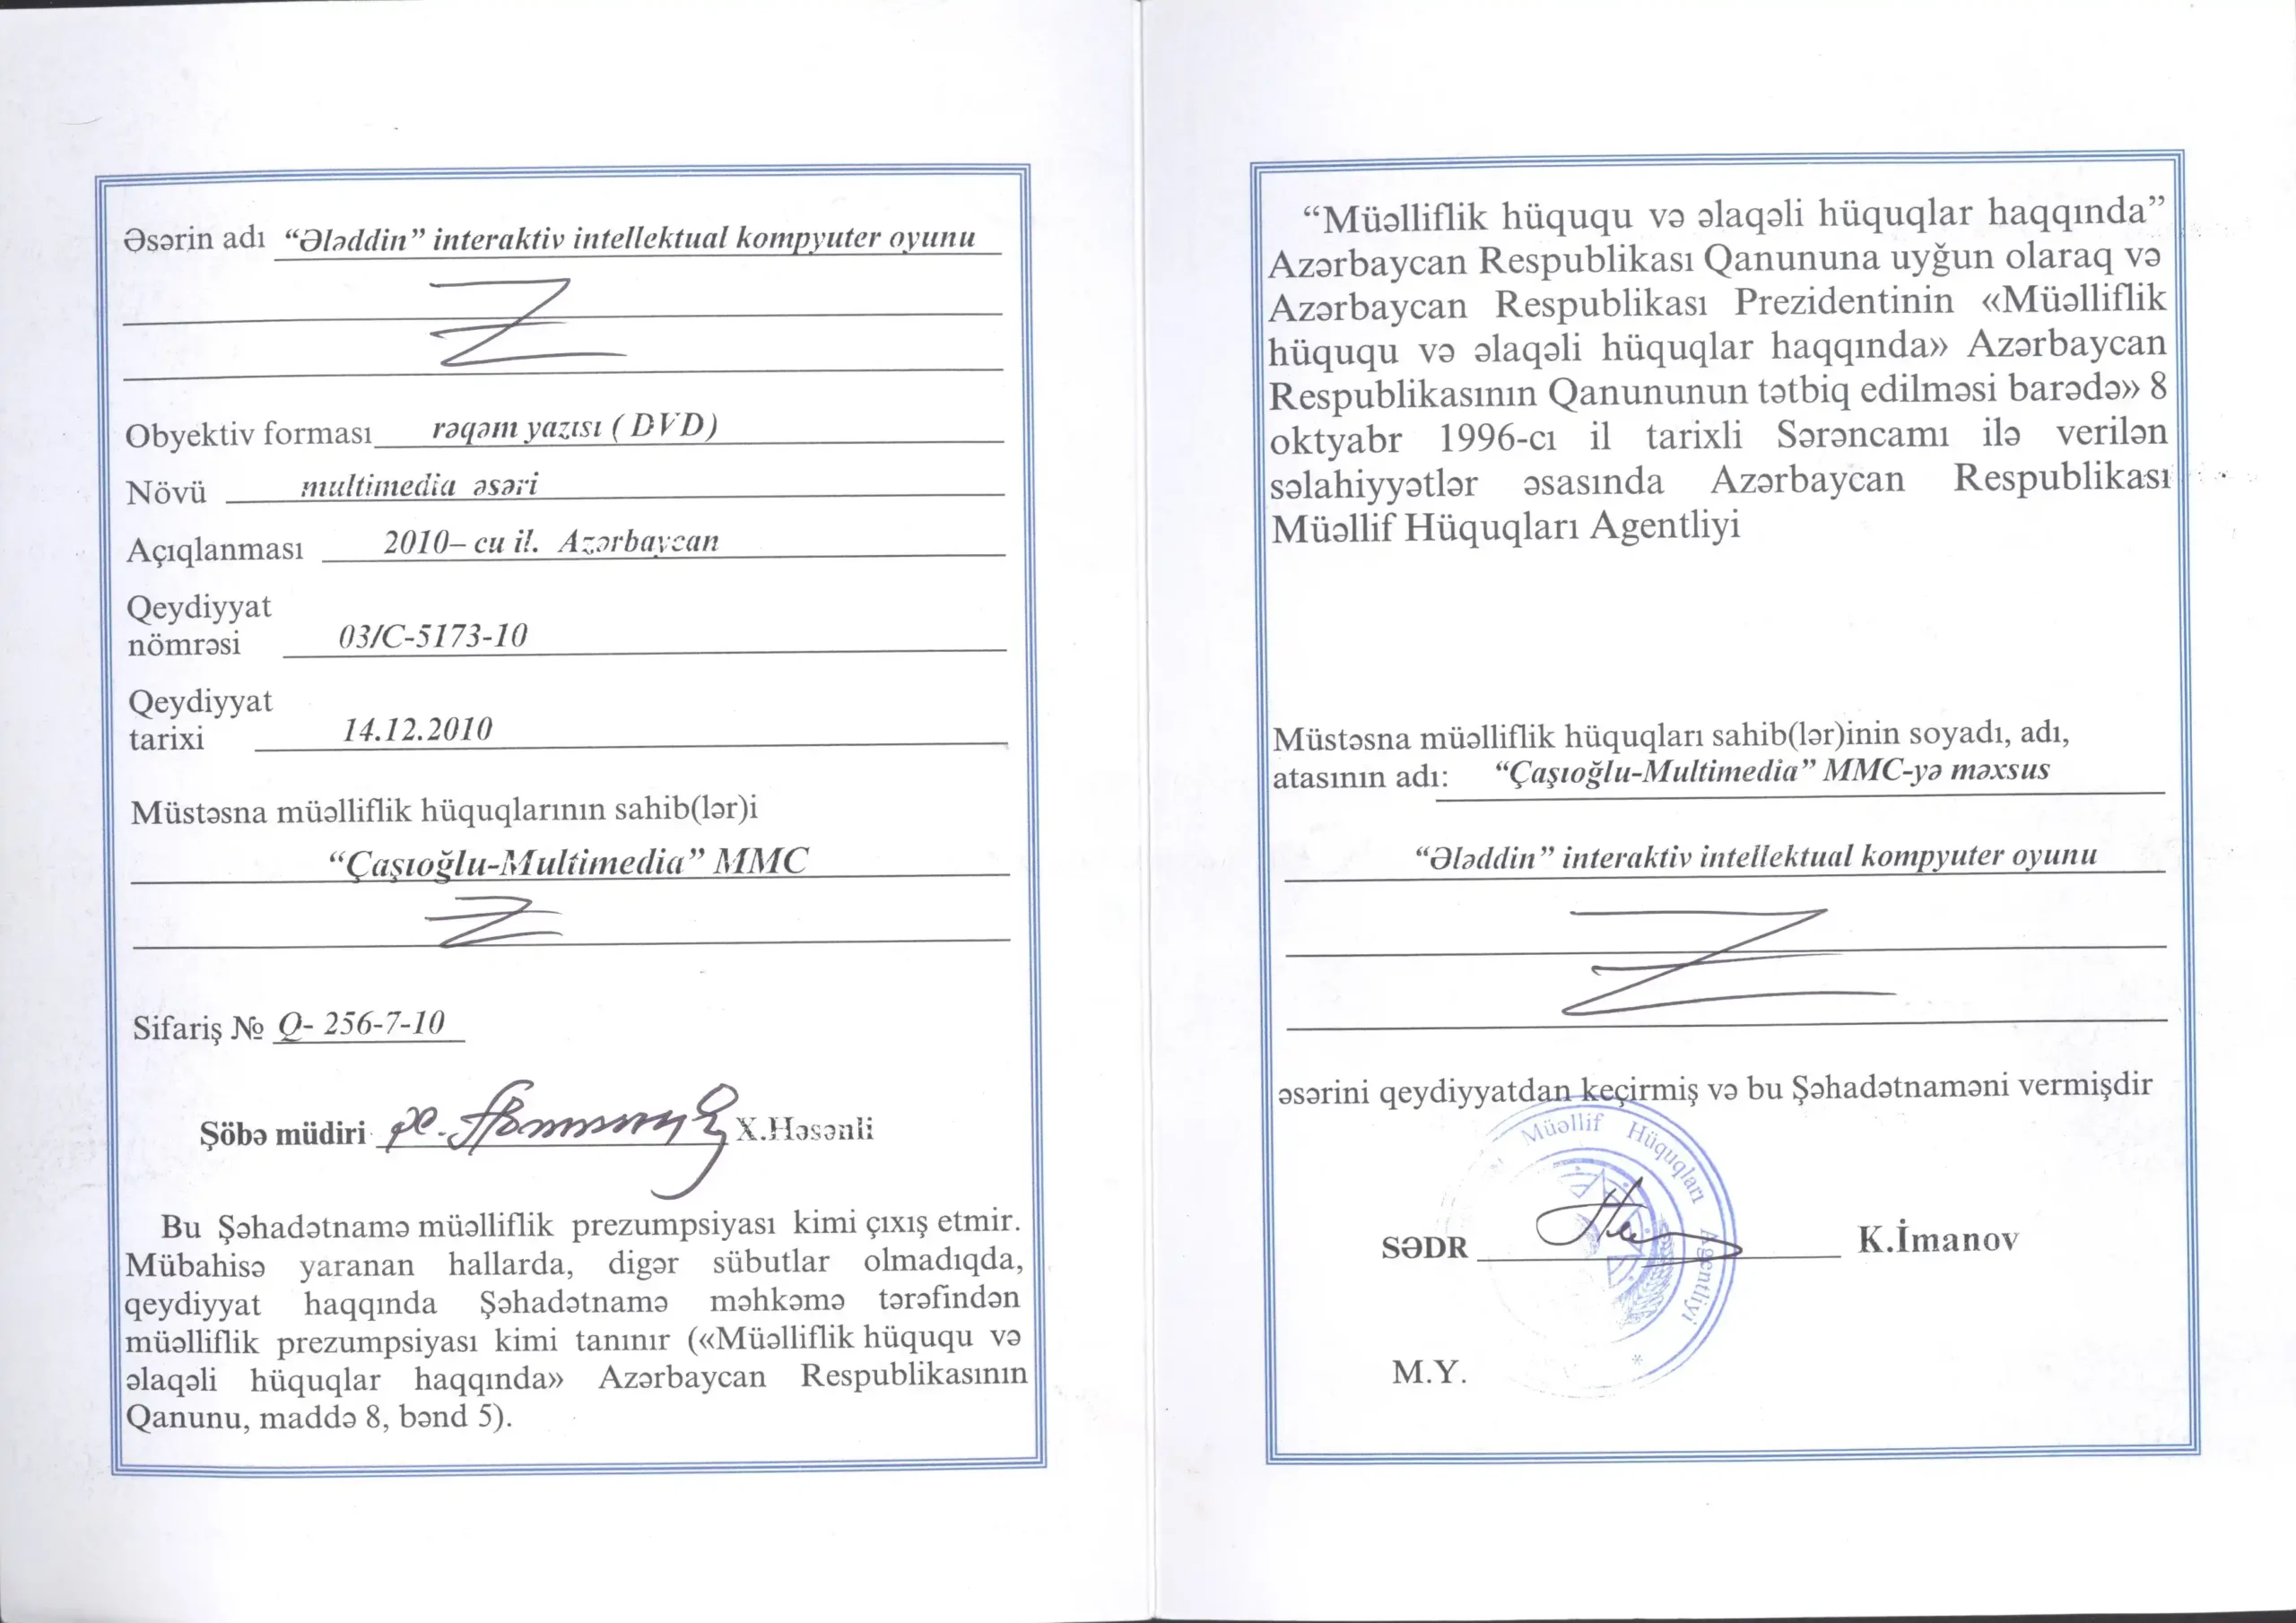 Əsərin adı “Ələddin” interaktiv intellektual kompyuter oyunu
Obyektiv forması rəqəm yazısı ( DVD)
Növü multimedia əsəri
Açıqlanması 2010– cu il. Azərbaycan
Qeydiyyat
nömrəsi 03/C-5173-10
Qeydiyyat
tarixi 14.12.2010
Müstəsna müəlliflik hüquqlarının sahib(lər)i
“Çaşıoğlu-Multimedia” MMC
Sifariş № Q- 256-7-10
Şöbə müdiri X.Həsənli
Bu Şəhadətnamə müəlliflik prezumpsiyası kimi çıxış etmir.
Mübahisə yaranan hallarda, digər sübutlar olmadıqda,
qeydiyyat haqqında Şəhadətnamə məhkəmə tərəfindən
müəlliflik prezumpsiyası kimi tanınır («Müəlliflik hüququ və
əlaqəli hüquqlar haqqında» Azərbaycan Respublikasının
Qanunu, maddə 8, bənd 5).
“Müəlliflik hüququ və əlaqəli hüquqlar haqqında”
Azərbaycan Respublikası Qanununa uyğun olaraq və
Azərbaycan Respublikası Prezidentinin «Müəlliflik
hüququ və əlaqəli hüquqlar haqqında» Azərbaycan
Respublikasının Qanununun tətbiq edilməsi barədə» 8
oktyabr 1996-cı il tarixli Sərəncamı ilə verilən
səlahiyyətlər əsasında Azərbaycan Respublikası
Müəllif Hüquqları Agentliyi
Müstəsna müəlliflik hüquqları sahib(lər)inin soyadı, adı,
atasının adı: “Çaşıoğlu-Multimedia” MMC-yə məxsus
“Ələddin” interaktiv intellektual kompyuter oyunu
əsərini qeydiyyatdan keçirmiş və bu Şəhadətnaməni vermişdir
Müəllif Hüquqları Agentliyi
SƏDR K.İmanov
M.Y.